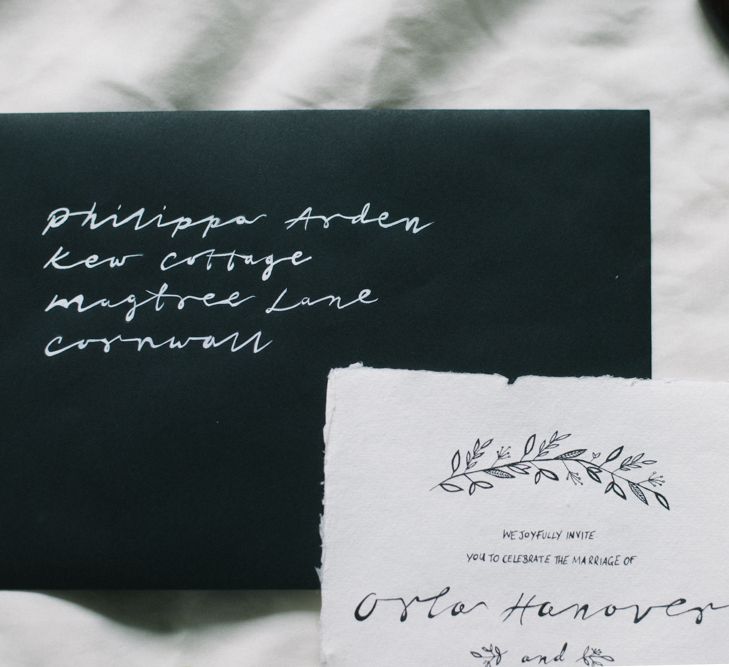 Philippa Arden
Kew Cottage
Magtree Lane
Cornwall
WE JOYFULLY INVITE
YOU TO CELEBRATE THE MARRIAGE OF
Orla Hanover
and